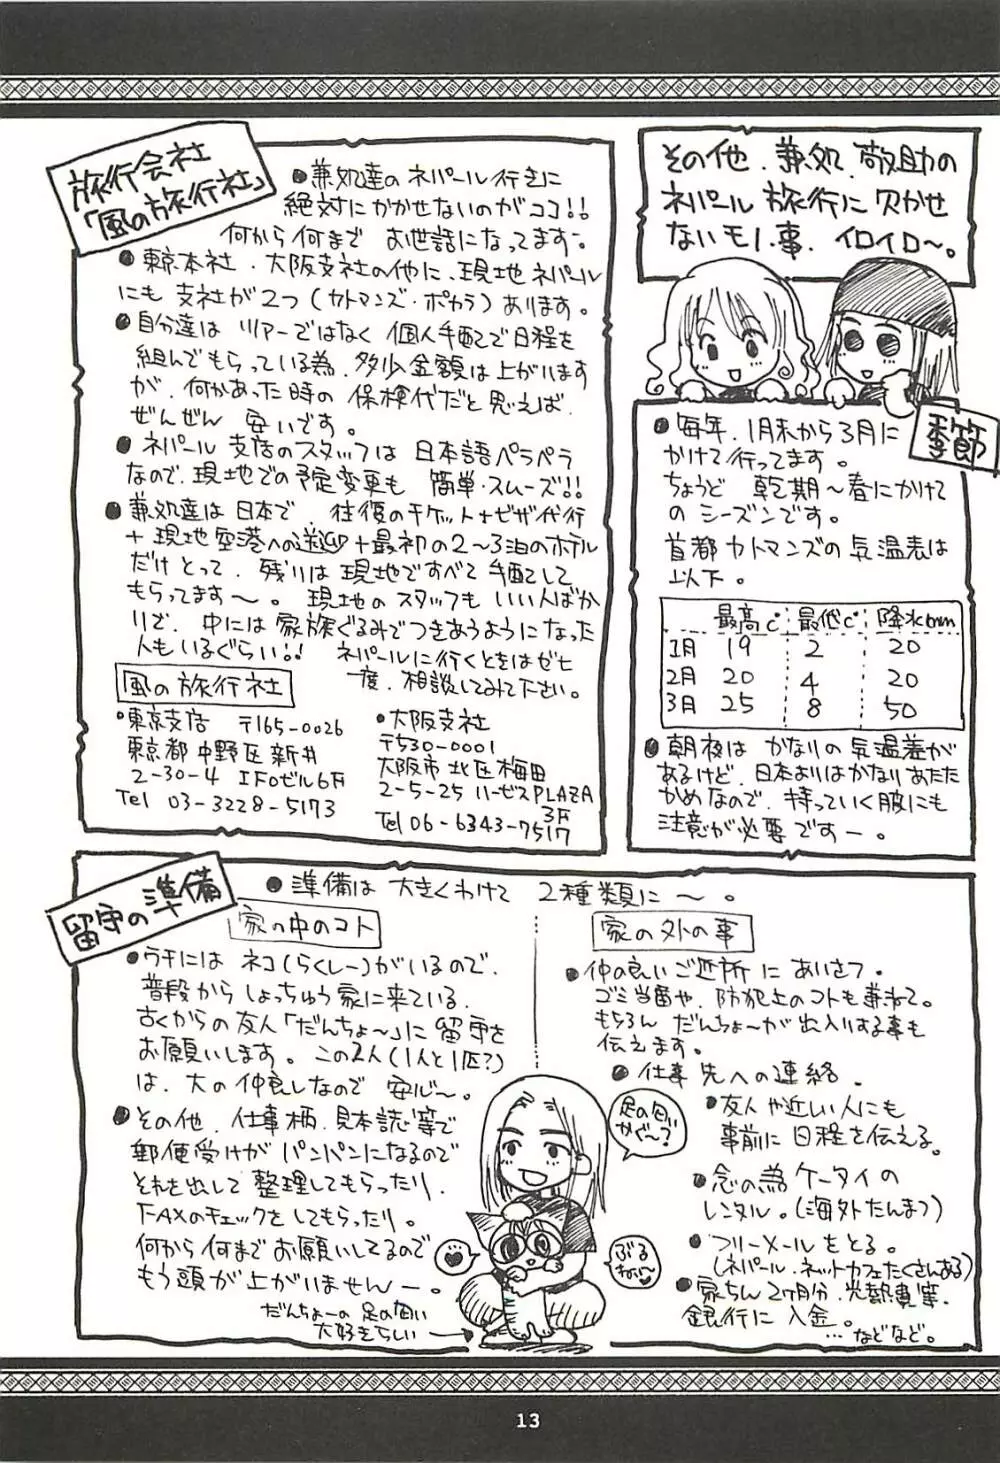 その他.兼処.敬助の
ネパール 旅行に欠かせ
ないモノ.事.イロイロ〜。
旅行会社
「風の旅行社」
●兼処達のネパール行きに
絶対にかかせないのがココ!!
何から何まで お世話になってます。
●東京本社.大阪支社の他に、現地ネパール
にも支社が2つ(カトマンズ・ポカラ)あります。
●自分達は ツアーではなく 個人手配で日程を
組んでもらっている為、多少金額は上がります
が、何かあった時の保検代だと思えば.
ぜんぜん 安いです。
●ネパール支店のスタッフは 日本語ペラペラ
なので、現地での予定変更も 簡単・スムーズ!!
●兼処達は日本で. 往復のチケット+ビザ代行
+現地空港への送迎+最初の2〜3泊のホテル
だけとって、残りは現地ですべて手配して
もらってます〜。現地のスタッフもいい人ばか
りで、中には家族ぐるみでつきあうようになった
人もいるぐらい!! ネパールに行くときはぜヒ
一度.相談してみて下さい。
風の旅行社
・東京支店 〒165-0026
東京都中野区新井
2-30-4 IFOビル6F
Tel 03-3228-5173
・大阪支社
〒530-0001
大阪市北区梅田
2-5-25 ハービスPLAZA
3F
Tel 06-6343-7517
季節
●毎年、1月末から3月に
かけて行ってます。
ちょうど 乾期〜春にかけて
のシーズンです。
首都カトマンズの気温表は
以下。
最高℃ 最低℃ 降水mm
1月 19 2 20
2月 20 4 20
3月 25 8 50
●朝夜は かなりの気温差が
あるけど、日本よりはかなりあたた
かめなので、持っていく服にも
注意が必要ですー。
留守の準備
●準備は 大きくわけて 2種類に〜。
家の中のコト
●ウチには ネコ(らくしー)がいるので、
普段からしょっちゅう家に来ている、
古くからの友人「だんちょ〜」に留守を
お願いします。この2人(1人と1匹?)
は、大の仲良しなので 安心〜。
●その他、仕事柄、見本誌等で
郵便受けがパンパンになるので
それを出して整理してもらったり、
FAXのチェックをしてもらったり。
何から何までお願いしてるので
もう頭が上がいませんー。
だんちょーの足の匂い
大好きらしい→
足の匂い
かぐ〜?
ぶる
ねい〜
家の外の事
●仲の良いご近所にあいさつ.
ゴミ当番や、防犯上のコトも兼ねて。
もちろん だんちょ〜が出入りする事も
伝えます。
●仕事先への連絡.
●友人や近しい人にも
事前に日程を伝える。
●念の為ケータイの
レンタル。(海外たんまつ)
●フリーメールをとる。
(ネパール.ネットカフェたくさんある)
●家ちん2ヶ月分.光熱費等.
銀行に入金。
…などなど。
13